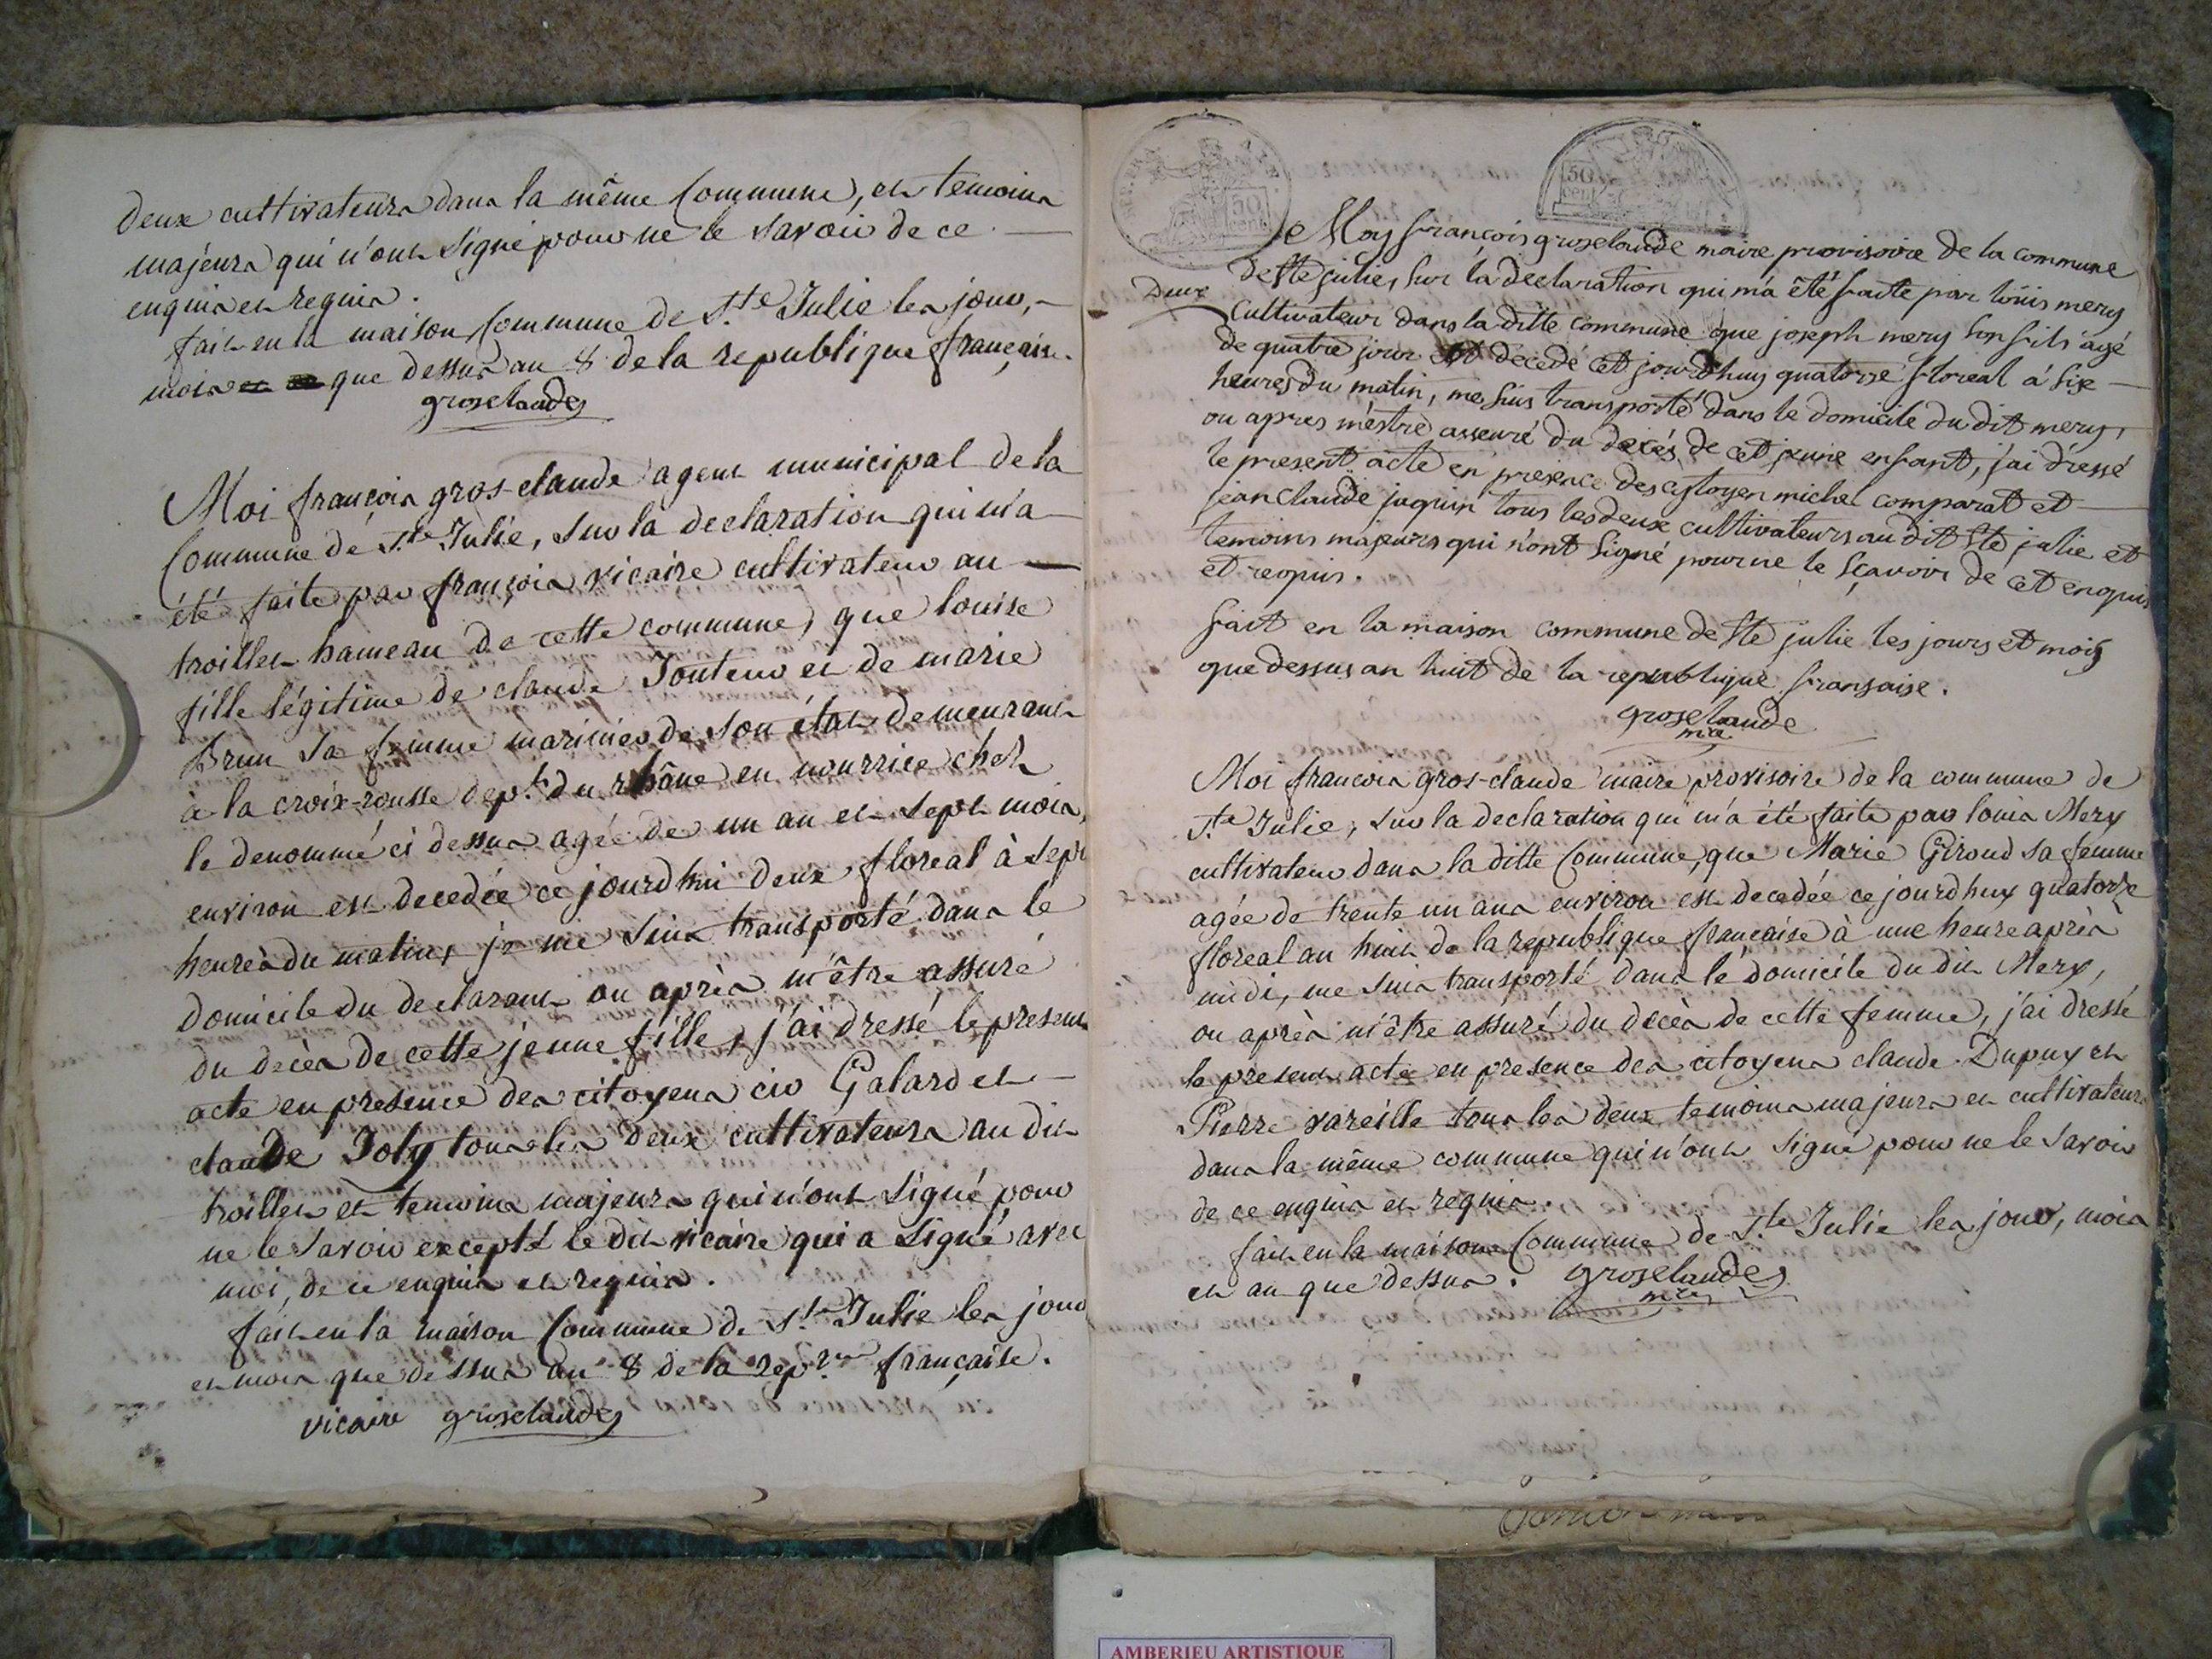 deux cultivateurs dans la même Commune, et temoins
majeurs qui n'ont Signé pour ne le savoir de ce
enquis et requis.
fait en la maison Commune de Ste Julie les jour,
mois que dessus an 8 de la republique française.
grosclaude
Moi françois gros-claude agent municipal de la
Commune de Ste Julie, sur la declaration qui m'a
été faite par françois vicaire cultivateur au
troillet hameau de cette commune, que louise
fille légitime de claude Jouteur et de marie
Brun sa femme marinier de son état demeurant
à la croix-rousse dept. du rhône en nourrice chez
le denommé ci dessus agée de un an et sept mois,
environ est decedée ce jourdhui deux floreal à sept
heures du matin, je me suis transporté dans le
domicile du declarant ou après m'être assuré
du decès de cette jeune fille, j'ai dressé le present
acte en presence des citoyens cir Galard et
claude Joly tous les deux cultivateurs au dit
troillet et temoins majeurs qui n'ont Signé pour
ne le savoir excepté le dit vicaire qui a signé avec
moi, de ce enquis et requis.
fait en la maison Commune de Ste Julie les jour
et mois que dessus an 8 de la repque française.
vicaire grosclaude
50 cent
50 cent
Moy françois grosclaude maire provisoire de la commune
de Ste julie, sur la declaration qui m'a êté faite par loüis mery
Deux
Cultivateur dans la ditte commune que joseph mery son fils agé
de quatre jour est decedé cet jourdhuy quatorse floreal á six
heures du matin, me suis transporté dans le domicile du dit mery,
ou apres mêstre asseuré du decés de cet jeune enfant, j'ai dressé
le present acte en presence des citoyen michel comparat et
jean claude jaquin tous les deux cultivateurs au dit Ste julie et
temoins majeurs qui n'ont signé pour ne le sçavoir de cet enquis
et requis.
fait en la maison commune de Ste julie les jours et mois
que dessus an huit de la republique fransaise.
grosclaude
mre
Moi francois gros-claude maire provisoire de la commune de
Ste Julie, sur la declaration qui m'a été faite par louis Mery
cultivateur dans la ditte Commune, que Marie Giroud sa femme
agée de trente un ans environ est decedée ce jourdhuy quatorze
floreal an huit de la republique francaise à une heure après
midi, me suis transporté dans le domicile du dit Mery,
ou après m'être assuré du decès de cette femme, j'ai dressé
le present acte en presence des citoyens claude Dupuy et
Pierre vareille tous les deux temoins majeurs et cultivateurs
dans la même commune qui n'ont signé pour ne le savoir
de ce enquis et requis.
fait en la maison Commune de Ste Julie les jour, mois
et an que dessus. grosclaude
mre
AMBERIEU ARTISTIQUE